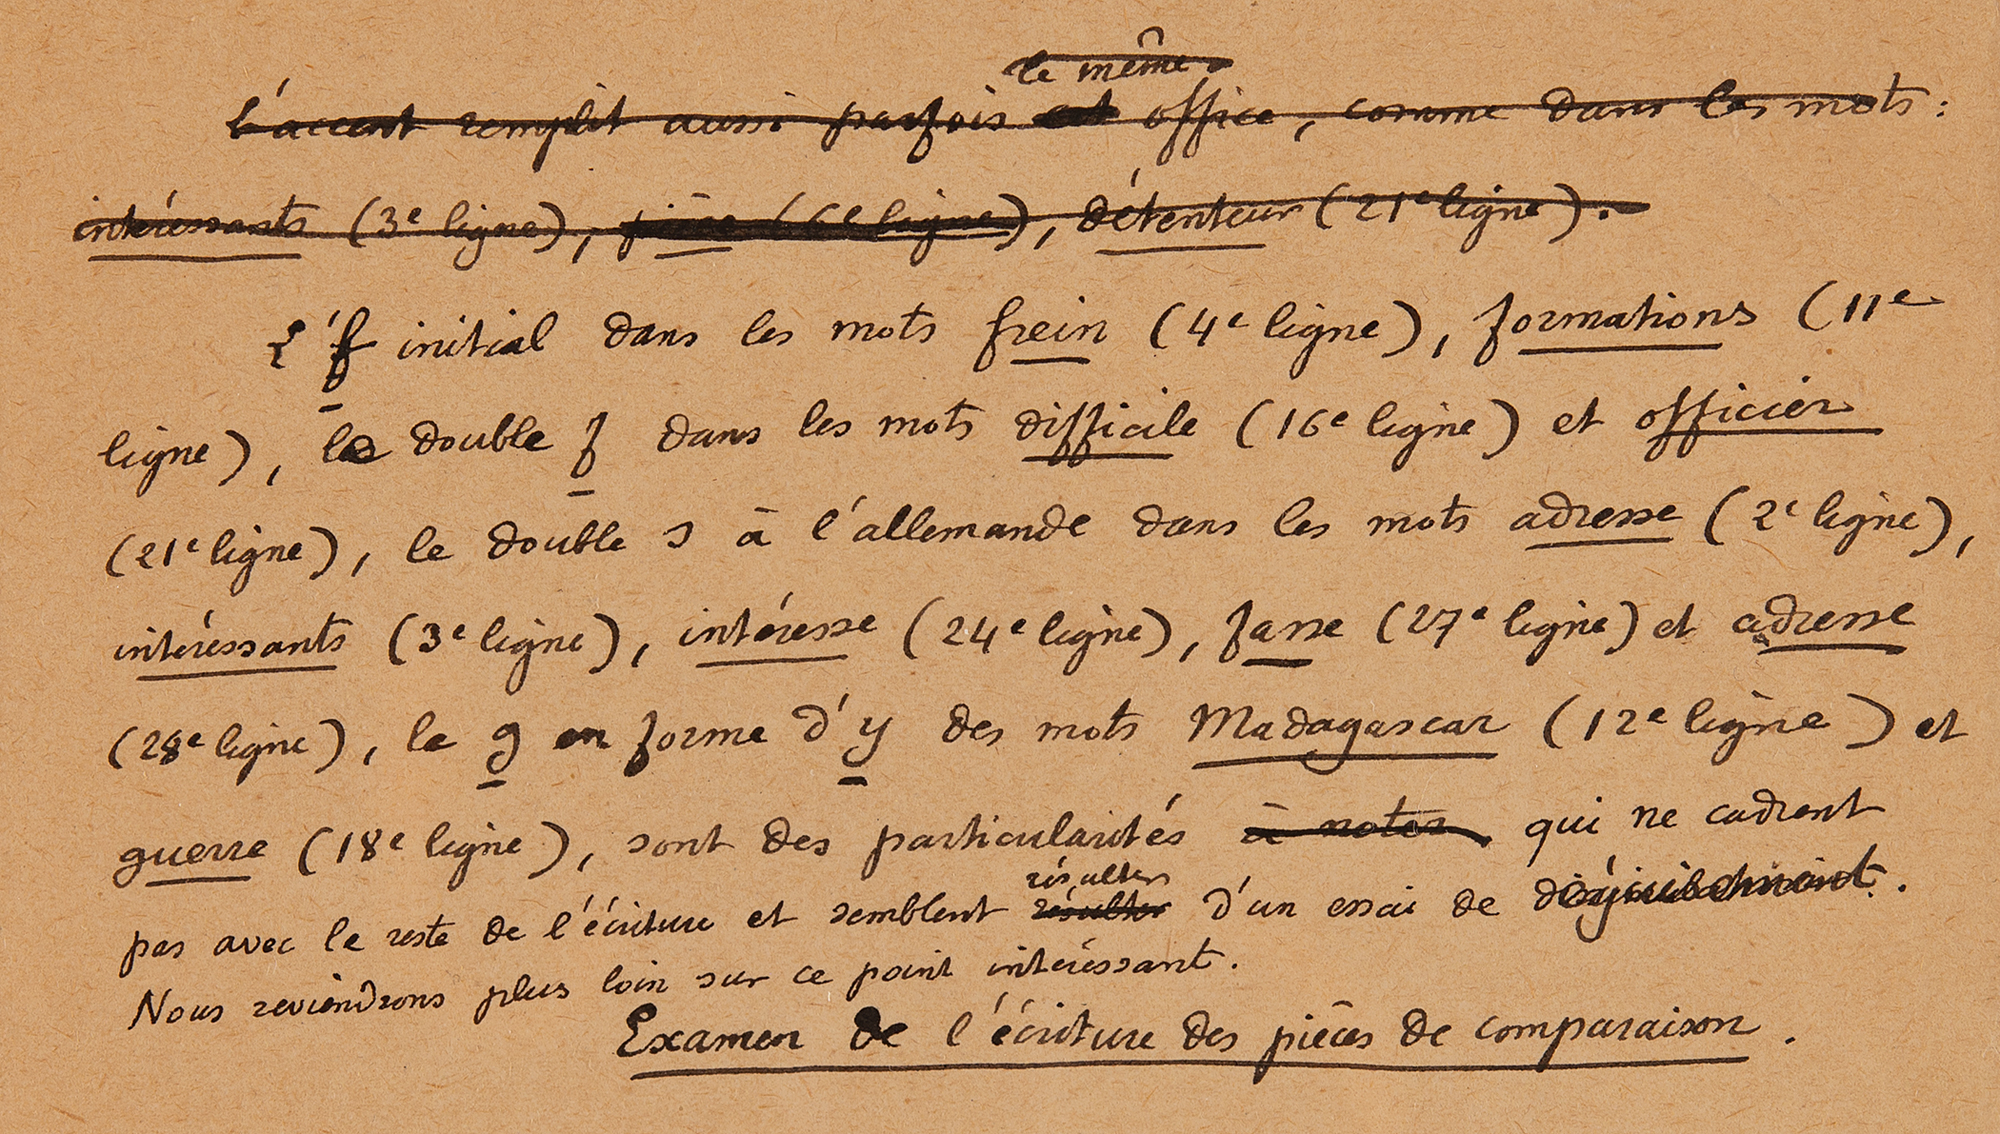 le même
L'accent remplit aussi parfois cet office, comme dans les mots :
intéressants (3e ligne), pièce (6e ligne), détenteur (21e ligne).
L'f initial dans les mots frein (4e ligne), formations (11e
ligne), le double f dans les mots difficile (16e ligne) et officier
(21e ligne), le double s à l'allemande dans les mots adresse (2e ligne),
intéressants (3e ligne), intéresse (24e ligne), fasse (27e ligne) et adresse
(28e ligne), le g en forme d'y des mots Madagascar (12e ligne) et
guerre (18e ligne), sont des particularités à noter qui ne cadrent
résulter
pas avec le reste de l'écriture et semblent résulter d'un essai de déguisement.
Nous reviendrons plus loin sur ce point intéressant.
Examen de l'écriture des pièces de comparaison.